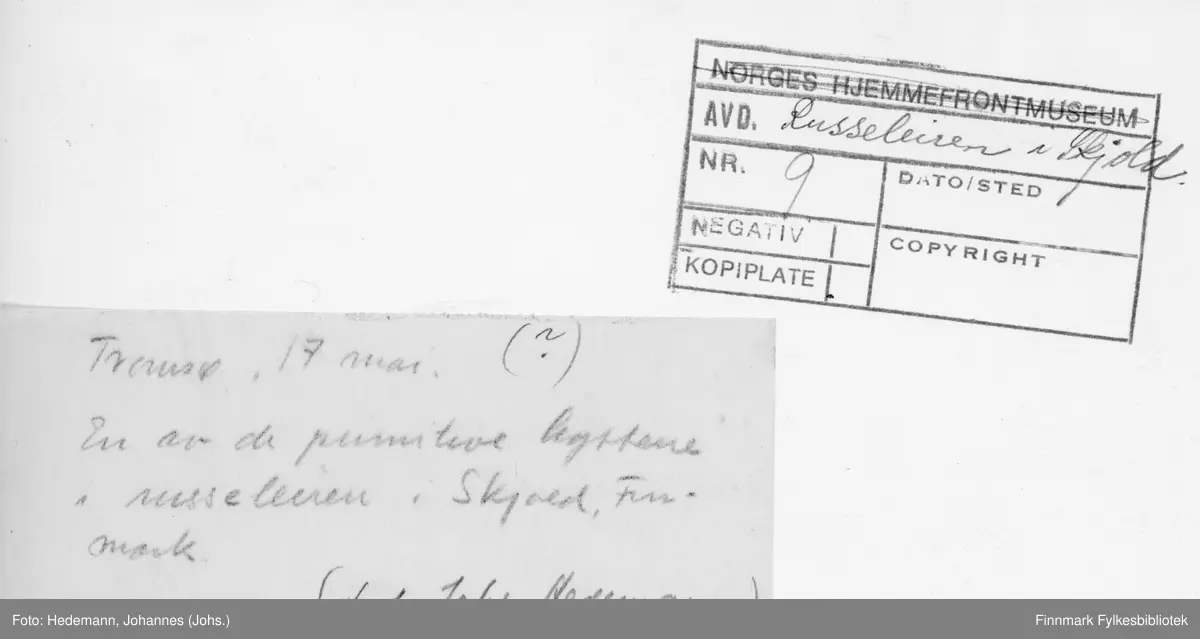 NORGES HJEMMEFRONTMUSEUM
AVD. Russeleiren i Skjold.
NR. 9
DATO/STED
NEGATIV
COPYRIGHT
KOPIPLATE
Tromsø, 17 mai. (?)
En av de primitive hyttene
i russeleiren i Skjold, Fin-
mark
Johs. Hedeman
Foto: Hedemann, Johannes (Johs.)
Finnmark Fylkesbibliotek